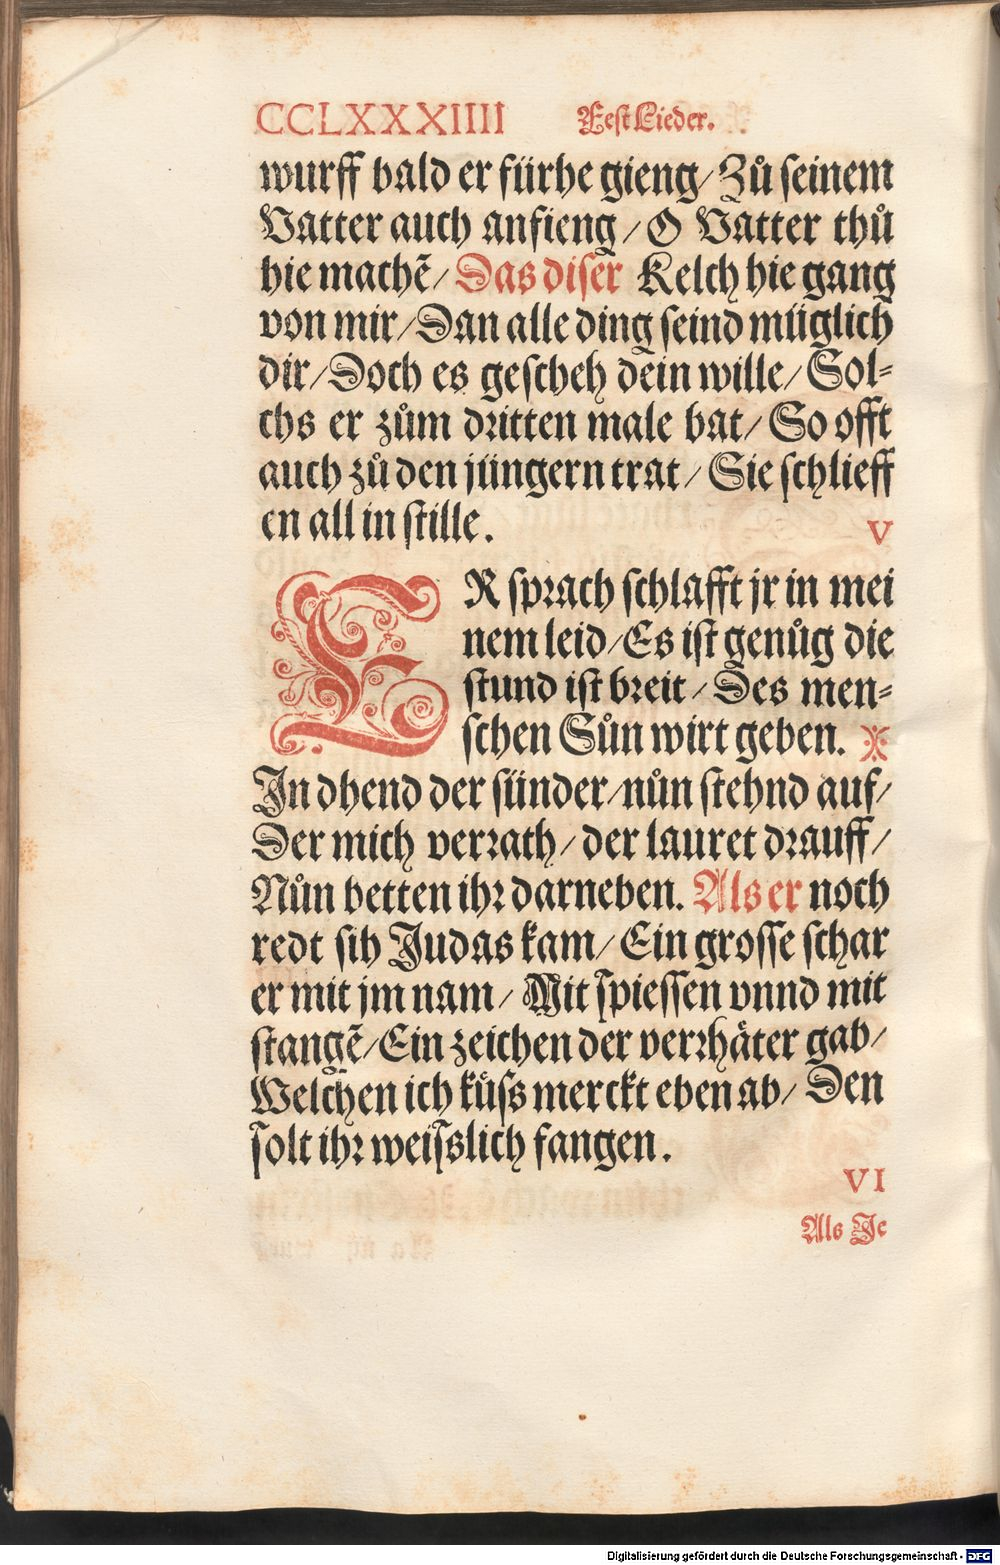 CCLXXXIIII Fest Lieder.
wurff bald er fürhe gieng/ Zů seinem
Vatter auch anfieng/ O Vatter thů
hie machẽ/ Das diser Kelch hie gang
von mir/ Dan alle ding seind müglich
dir/ Doch es gescheh dein wille/ Sol⸗
chs er zům dritten male bat/ So offt
auch zů den jüngern trat/ Sie schlieff
en all in stille. V
ER sprach schlafft jr in mei
nem leid/ Es ist genůg die
stund ist breit/ Des men⸗
schen Sůn wirt geben.
In dhend der sünder/ nůn stehnd auf/
Der mich verrath/ der lauret drauff/
Nůn betten ihr darneben. Als er noch
redt sih Judas kam/ Ein grosse schar
er mit jm nam/ Mit spiessen vnnd mit
stangẽ/ Ein zeichen der verrhåter gab/
Welchen ich kůss merckt eben ab/ Den
solt ihr weisslich fangen.
VI
Als Je
Digitalisierung gefördert durch die Deutsche Forschungsgemeinschaft - DFG